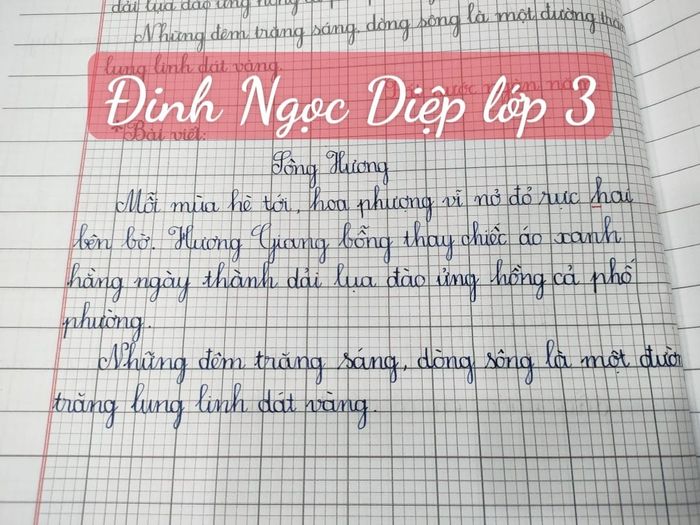 dải lụa đào ửng hồng
Những đêm trăng sáng, dòng sông là một đường trăng
lung linh dát vàng.
Đinh Ngọc Diệp lớp 3
* Bài viết:
Sông Hương
Mỗi mùa hè tới, hoa phượng vĩ nở đỏ rực hai
bên bờ. Hương Giang bỗng thay chiếc áo xanh
hằng ngày thành dải lụa đào ửng hồng cả phố
phường.
Những đêm trăng sáng, dòng sông là một đườn
trăng lung linh dát vàng.